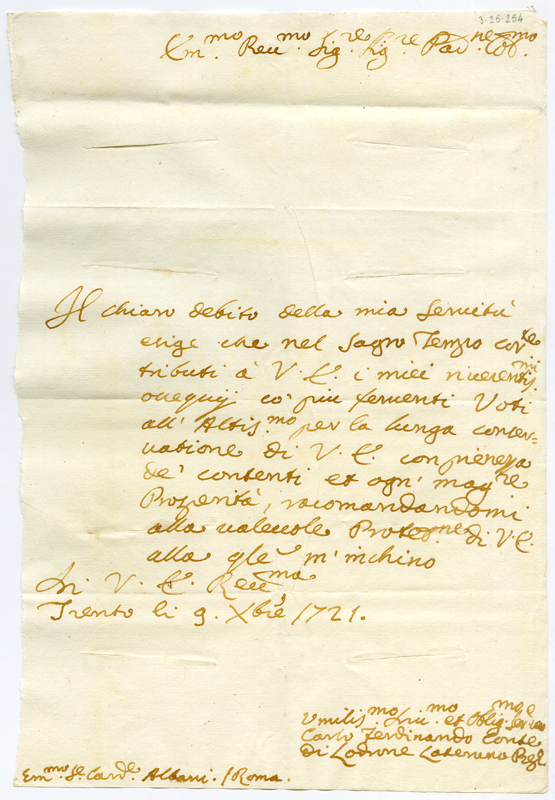 3-25-254
Em.mo Reu.mo Sig.re Sig.re Pad.ne Col.mo
Il chiaro debito della mia seruitù
esige che nel sagro Tempo cor.te
tributi à V. E. i miei riuerent.mi
ossequij co' più feruenti Voti
all' Altis.mo per la lunga conser-
uatione di V. E. con pienezza
de' contenti et ogn' mag.re
Prosperità, racomandandomi
alla ualeuole Protne di V. E.
alla qle m' inchino
Di V. E. Reu.ma
Trento li 9. Xbre 1721.
Vmilis.mo et Oblig.mo
Carlo Ferdinando Conte
Di Lodrone Laterano
Em.mo S.r Card.le Albani. / Roma.